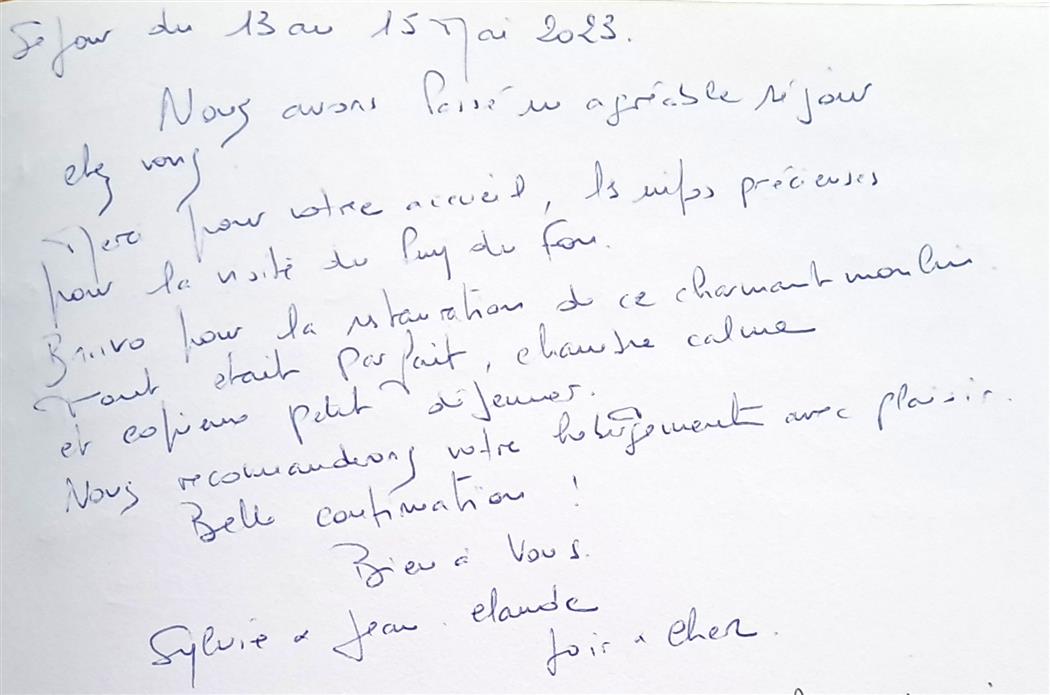 Séjour du 13 au 15 Mai 2023.
Nous avons passé un agréable séjour
chez vous
Merci pour votre accueil, les infos précieuses
pour la visite du Puy du Fou.
Bravo pour la restauration de ce charmant moulin
Tout était parfait, chambre calme
et copieux petit déjeuner.
Nous recommanderons votre hébergement avec plaisir.
Belle continuation !
Bien à Vous.
Sylvie & Jean-Claude
Loir & Cher.